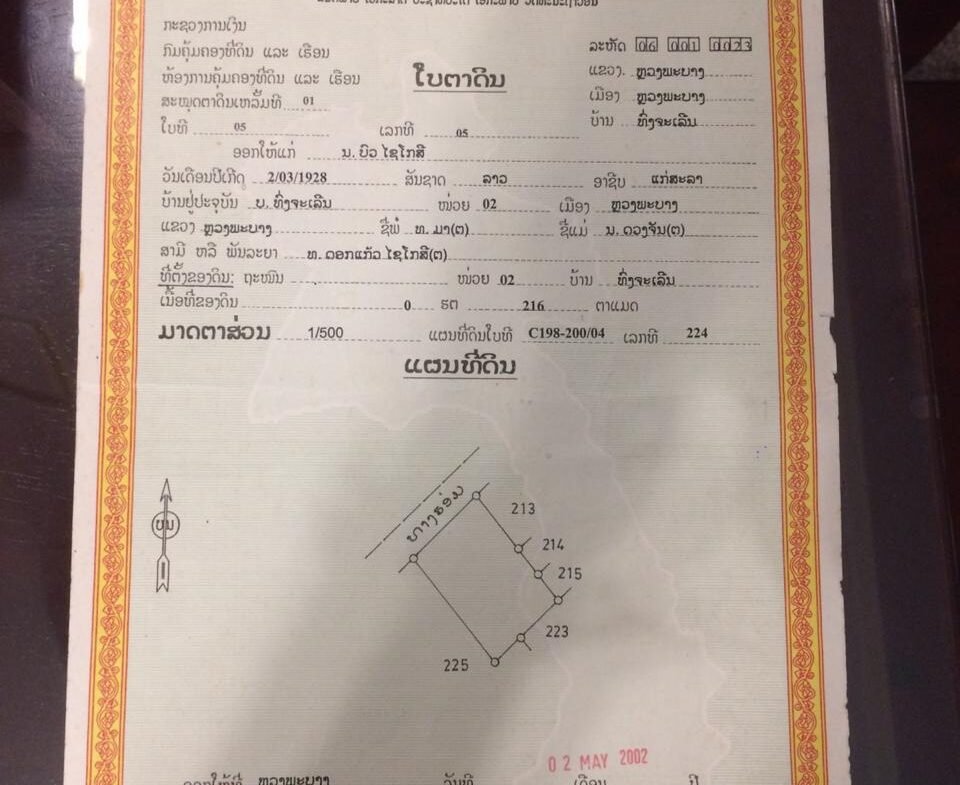 ກະຊວງການເງິນ
ກົມຄຸ້ມຄອງທີ່ດິນ ແລະ ເຮືອນ
ລະຫັດ 06 001 0023
ຫ້ອງການຄຸ້ມຄອງທີ່ດິນ ແລະ ເຮືອນ
ໃບຕາດິນ
ແຂວງ. ຫຼວງພະບາງ
ສະໝຸດຕາດິນເຫລັ້ມທີ 01
ເມືອງ ຫຼວງພະບາງ
ໃບທີ 05 ເລກທີ 05
ບ້ານ ທົ່ງຈະເລີນ
ອອກໃຫ້ແກ່ ນ. ບົວ ໄຊໂກສີ
ວັນເດືອນປີເກີດ 2/03/1928 ສັນຊາດ ລາວ ອາຊີບ ແກ່ສະລາ
ບ້ານຢູ່ປະຈຸບັນ ບ. ທົ່ງຈະເລີນ ໜ່ວຍ 02 ເມືອງ ຫຼວງພະບາງ
ແຂວງ ຫຼວງພະບາງ ຊື່ພໍ່ ທ. ມາ(ຕ) ຊື່ແມ່ ນ. ດວງຈັນ(ຕ)
ສາມີ ຫລື ພັນລະຍາ ທ. ດອກແກ້ວ ໄຊໂກສີ(ຕ)
ທີ່ຕັ້ງຂອງດິນ: ຖະໜົນ ໜ່ວຍ 02 ບ້ານ ທົ່ງຈະເລີນ
ເນື້ອທີ່ຂອງດິນ 0 ຮຕ 216 ຕາແມດ
ມາດຕາສ່ວນ 1/500 ແຜນທີ່ດິນໃບທີ C198-200/04 ເລກທີ 224
ແຜນທີ່ດິນ
ທາງຮ່ອມ
213
214
215
223
225
02 MAY 2002
ອອກໃຫ້ທີ່ ຫຼວງພະບາງ ວັນທີ ເດືອນ ປີ